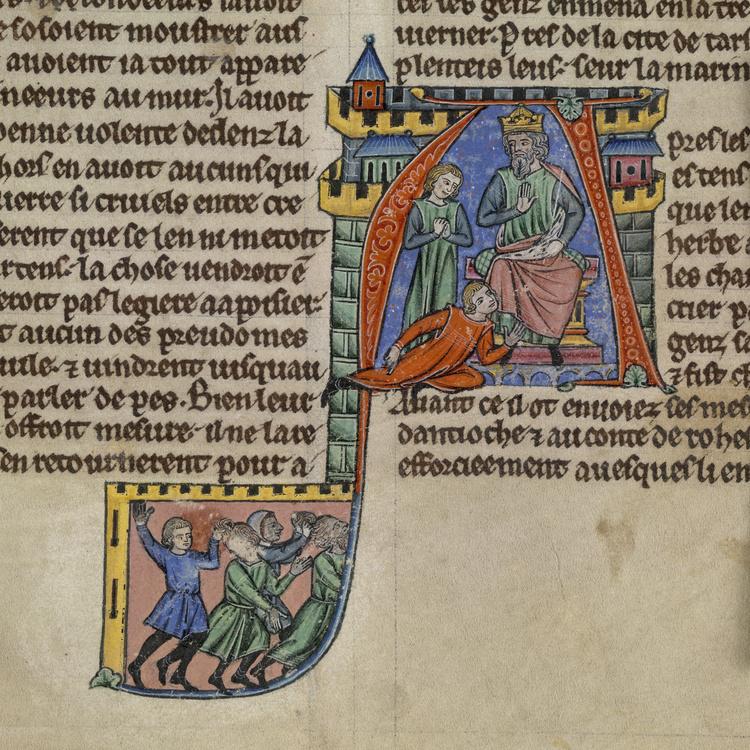 soloient moustrer aus
auoient ia tout appare
neeurs au mur. Il auoit
uolente dedenz la
hors en auoit aucuns qui
uerre si cruiels entre cre
serent que se len ni metoit
tens. la chose uendroit
pas legiere a apesier.
aucun des preudomes
uile. ⁊ uindrent iusquau
parler de pes. Bien leur
offroit mesure. il ne lare
sen retournerent pour a
les genz enmena en la tre
uierner. Pres de la cite de tars
plenteis leus. seur la marin
A
pres les
que ler
herbe
les cha
crier p
genz
⁊ fist ch
Aliaut ce il ot enuoiez ses mes
dantioche ⁊ au conte de rohes
efforcieement auesques li en